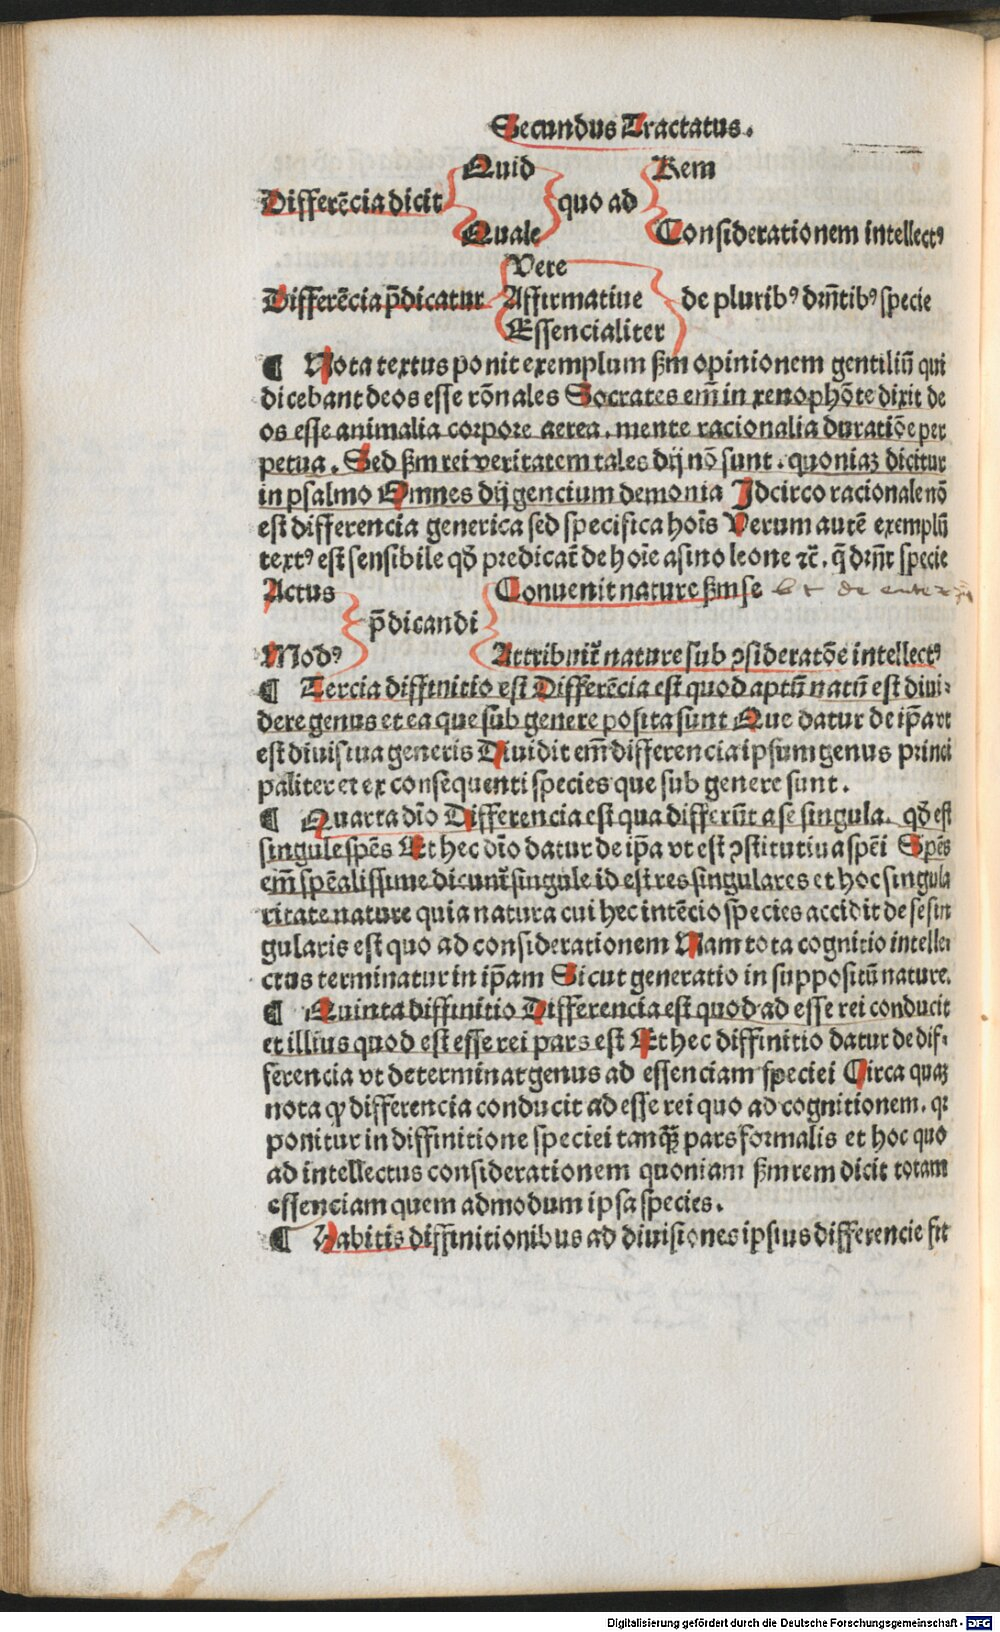 Secundus Tractatus.
Quid Rem
Differēcia dicit quo ad
Quale Considerationem intellectꝰ
Vere
Differēcia p̄dicatur Affirmatiue de pluribꝰ dr̄ntibꝰ specie
Essencialiter
¶ Nota textus ponit exemplum ẞm opinionem gentiliū qui
dicebant deos esse rōnales Socrates em̄ in xenophōte dixit de
os esse animalia corpore aerea. mente racionalia duratiōe per
petua. Sed ẞm rei veritatem tales dij nō sunt. quoniaꝫ dicitur
in psalmo Omnes dij gencium demonia Idcirco racionale nō
est differencia generica sed specifica hoīs Verum autē exemplū
textꝰ est sensibile qḋ predicat̄ de hoīe asino leone ⁊c̄. q̄ dr̄nt specie
Actus Conuenit nature ẞm se
p̄dicandi
Modꝰ Attribuit̄ nature sub ꝯsideratōe intellectꝰ
¶ Tercia diffinitio est Differēcia est quod aptū natū est diui⸗
dere genus et ea que sub genere posita sunt Que datur de ip̄a vt
est diuisiua generis Diuidit em̄ differencia ipsum genus princi
paliter et ex consequenti species que sub genere sunt.
¶ Quarta dīo Differencia est qua differūt a se singula. qḋ est
singule spēs Et hec dīo datur de ip̄a vt est ꝯstitutiua spēi Spēs
em̄ spēalissime dicunt̄ singule id est res singulares et hoc singula
ritate nature quia natura cui hec intēcio species accidit de se sin
gularis est quo ad considerationem Nam tota cognitio intelle
ctus terminatur in ip̄am Sicut generatio in suppositū nature.
¶ Quinta diffinitio Differencia est quod ad esse rei conducit
et illius quod est esse rei pars est Et hec diffinitio datur de dif⸗
ferencia vt determinat genus ad essenciam speciei Circa quaꝫ
nota ꝙ differencia conducit ad esse rei quo ad cognitionem. qꝛ
ponitur in diffinitione speciei tanqꝫ pars formalis et hoc quo
ad intellectus considerationem quoniam ẞm rem dicit totam
essenciam quem admodum ipsa species.
¶ Habitis diffinitionibus ad diuisiones ipsius differencie fit
Digitalisierung gefördert durch die Deutsche Forschungsgemeinschaft - DFG